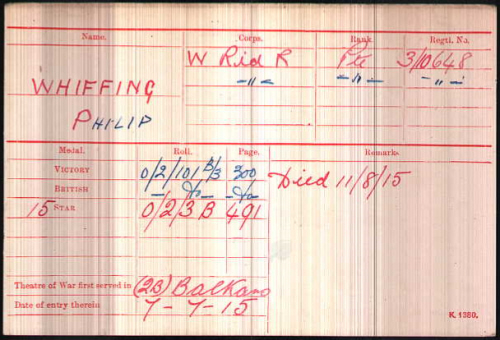 Name. Corps. Rank. Regtl. No.
W Rid R Pte 3/10648
WHIFFING -"- -"- -"-
PHILIP
Medal. Roll. Page. Remarks.
VICTORY 0/2/101 B/3 300 Died 11/8/15
BRITISH - do - - do -
15 STAR 0/2/3 B 491
Theatre of War first served in (2B) Balkans
Date of entry therein 7-7-15
K. 1380.